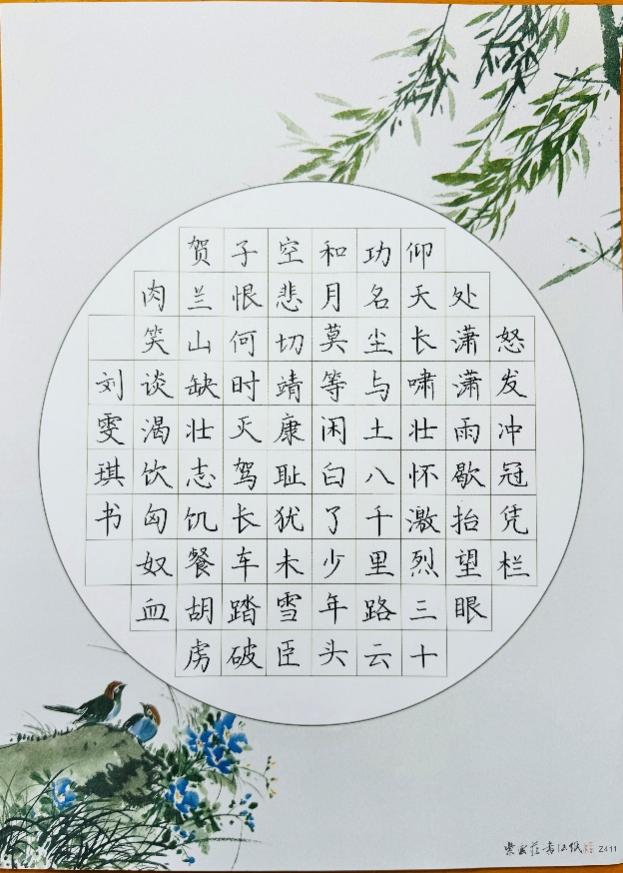 怒发冲冠凭栏
处潇潇雨歇抬望眼
仰天长啸壮怀激烈三十
功名尘与土八千里路云
和月莫等闲白了少年头
空悲切靖康耻犹未雪臣
子恨何时灭驾长车踏破
贺兰山缺壮志饥餐胡虏
肉笑谈渴饮匈奴血
刘雯琪书
Z411